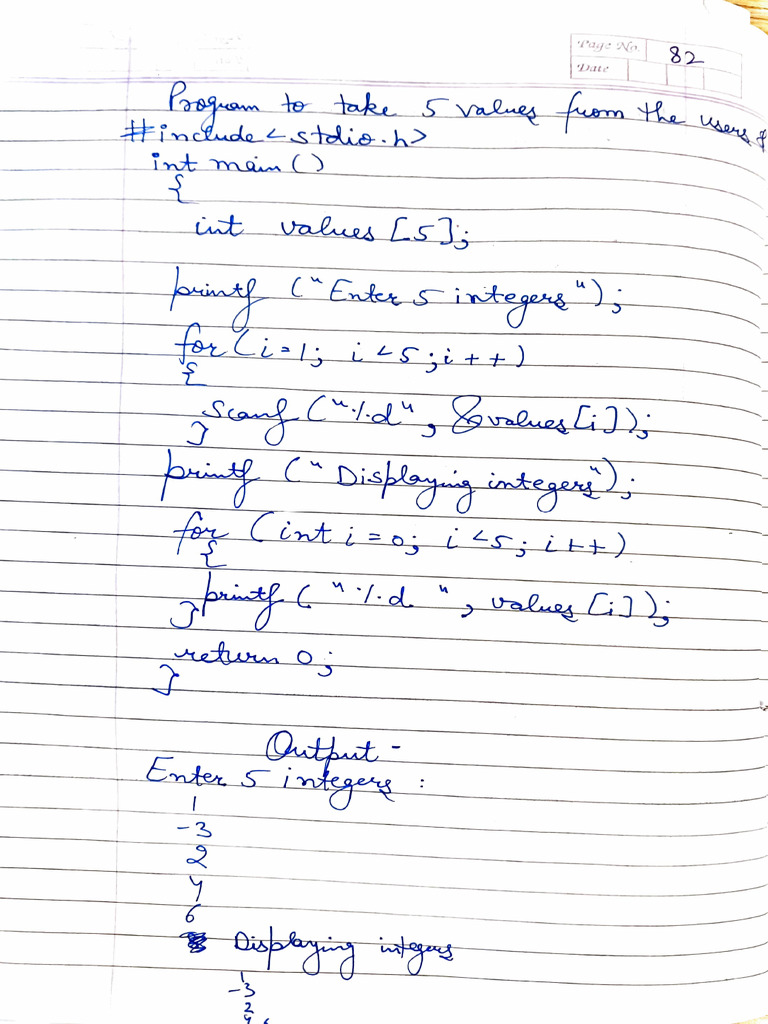 Page No. 82
Date
Program to take 5 values from the users &
#include <stdio.h>
int main ()
{
int values [5];
printf ("Enter 5 integers");
for (i=1; i<5; i++)
{
scanf ("%d", &values[i]);
}
printf ("Displaying integers");
for (int i=0; i<5; i++)
{
printf ("%d ", values [i]);
}
return 0;
}
Output -
Enter 5 integers :
1
-3
2
4
6
Displaying integers
1
-3
2
4 6